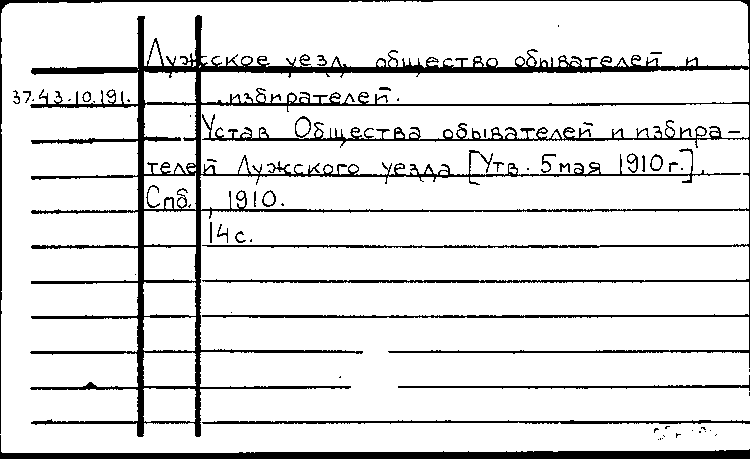 Лужское уезд. общество обывателей и
37.43.10.191.
избирателей.
Устав Общества обывателей и избира-
телей Лужского уезда [Утв. 5 мая 1910 г.].
Спб., 1910.
14 с.